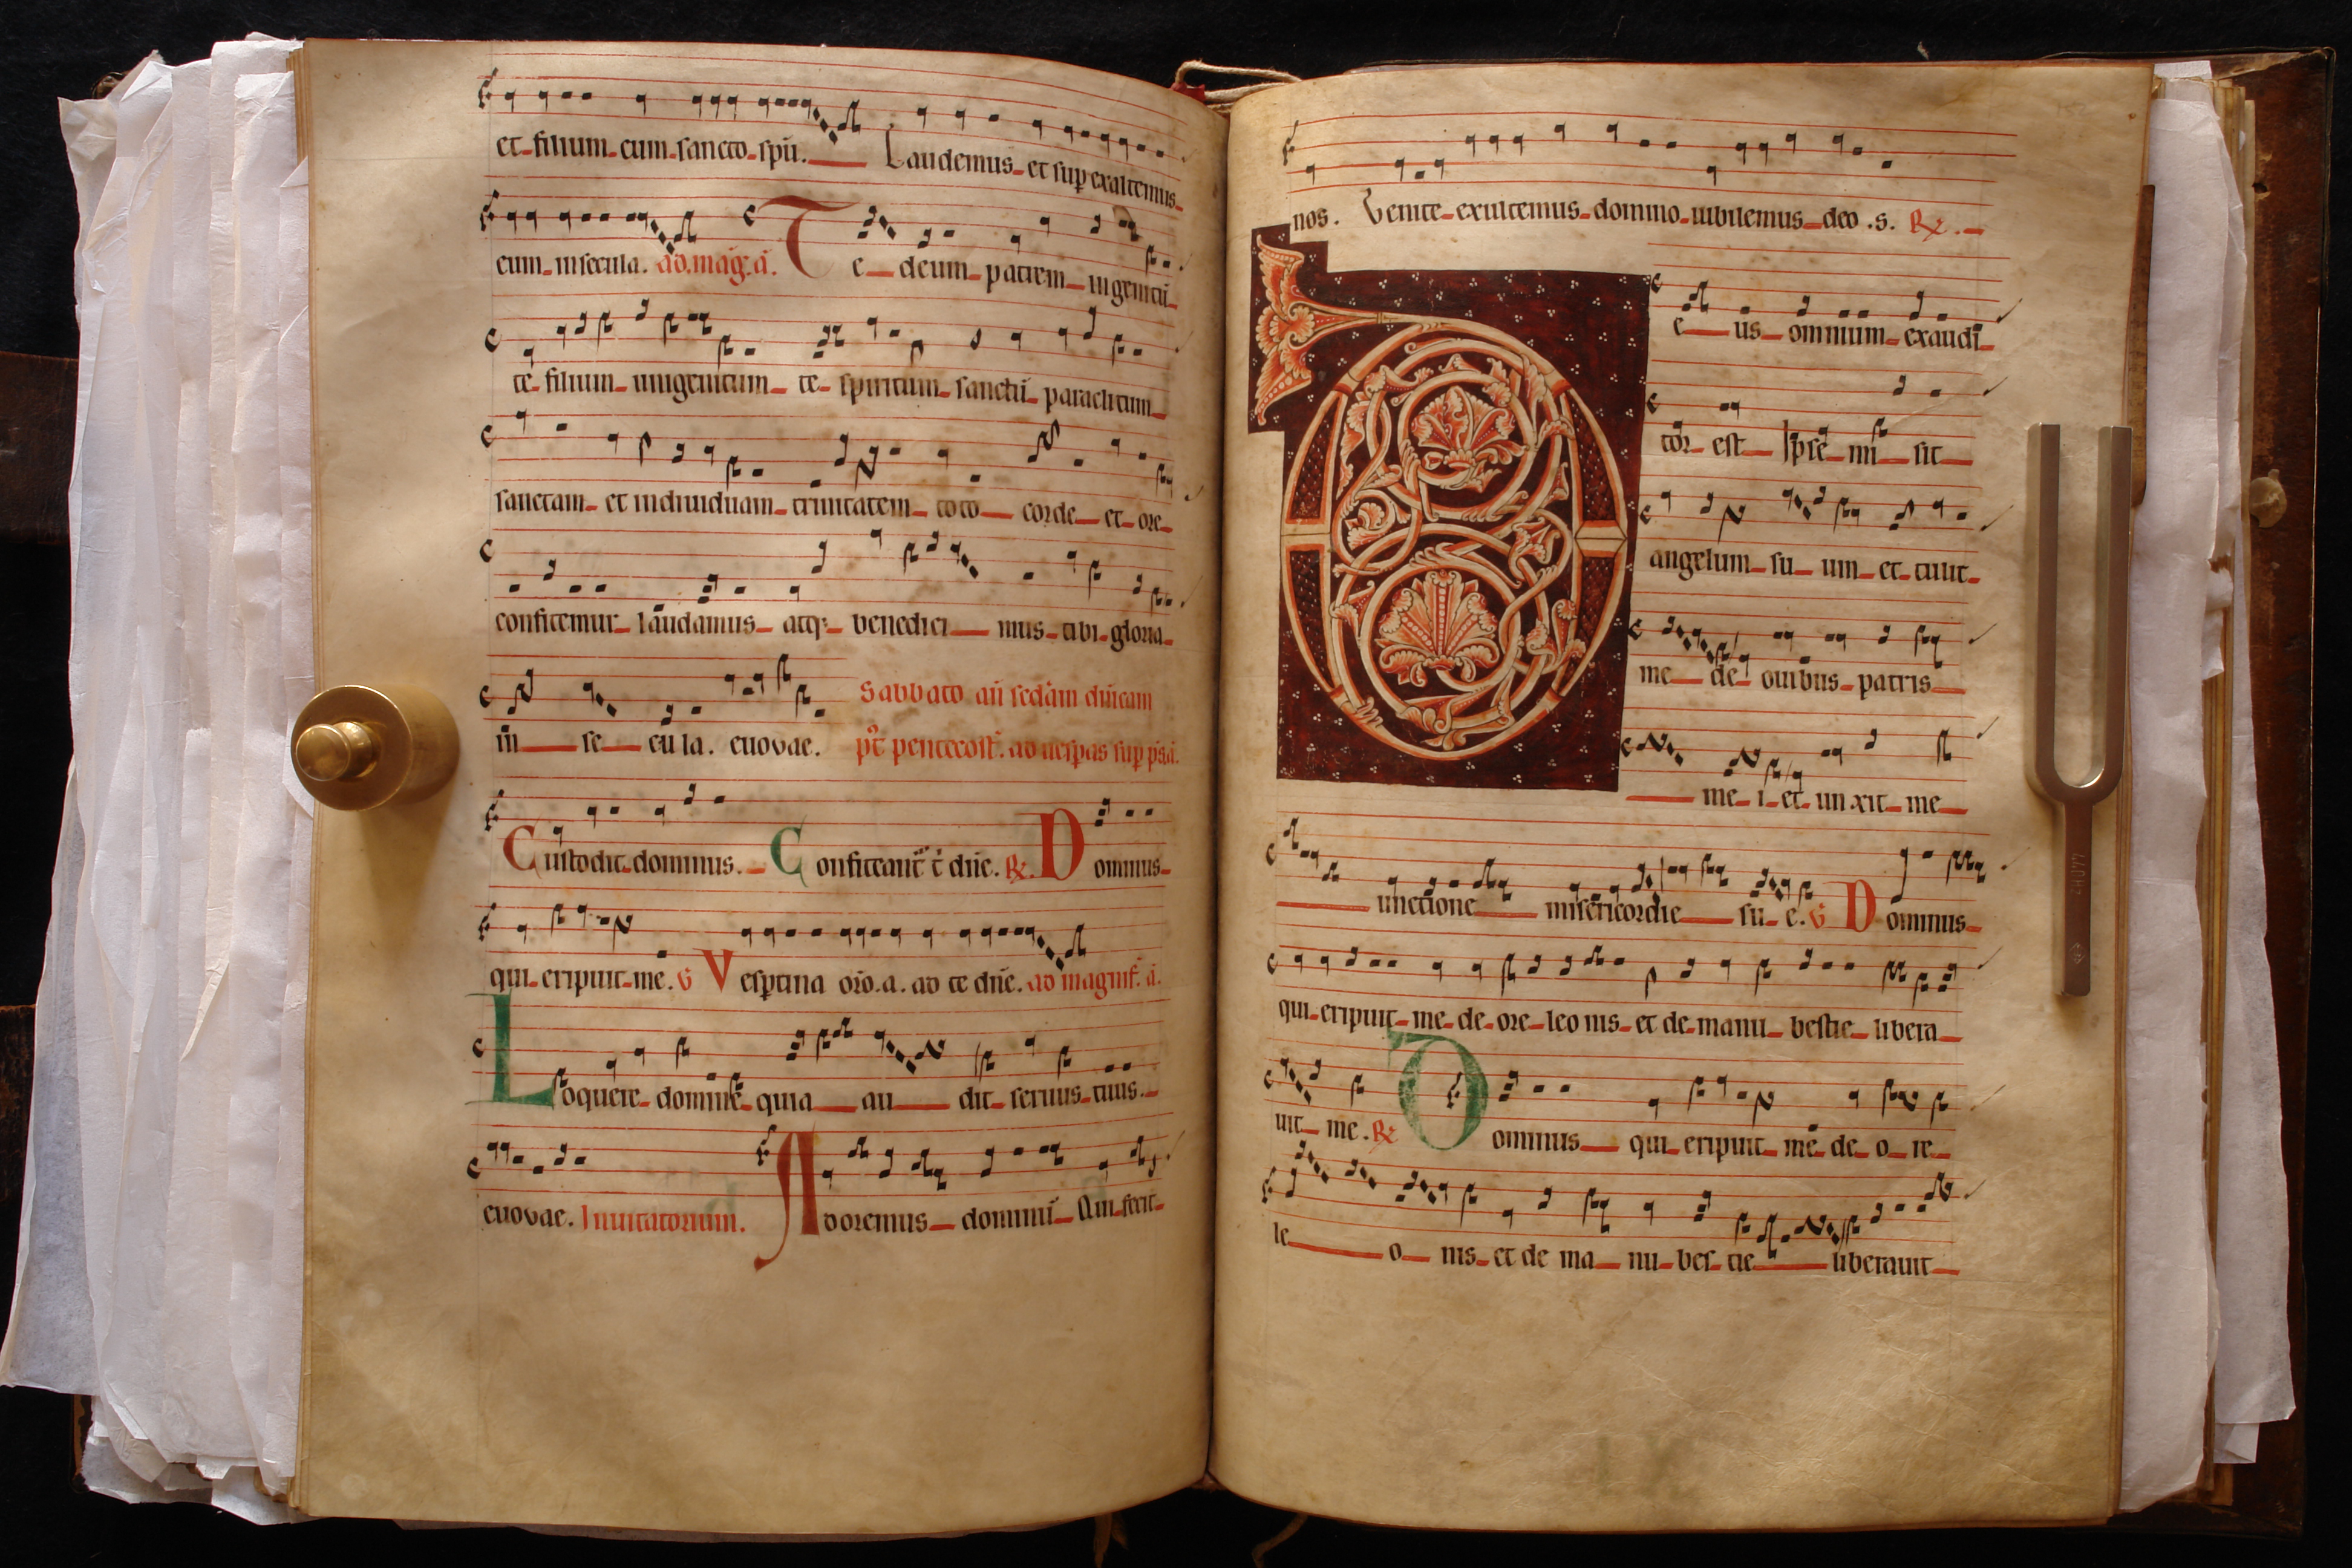 et filium cum sancto spū. Laudemus et sup exaltemus
eum in secula. ad. mag. ā. Te deum patrem ingenitū
te filium unigenitum te spiritum sanctū paraclitum
sanctam et indiuiduam trinitatem toto corde et ore
confitemur laudamus atq; benedici mus tibi gloria
in se cu la. euovae. Sabbato aū scdām dn̄icam
pt̄ pentecost. ad uespas sup ps. ā.
Custodit dominus. Confiteant̄ t̄ dn̄e. ℟. Dominus
qui eripuit me. V Vesptina orō. a. ad te dn̄e. ad magnif. ā.
Loquere domine quia au dit seruus tuus.
euovae. Inuitatorium. Adoremus dominū Qui fecit
nos. Venite exultemus domino iubilemus deo .s. ℟.
Deus omnium exaudi
tor est Ipse mi sit
angelum su um et tulit
me de ouibus patris
me i et un xit me
unctione misericordie su e. V Dominus
qui eripuit me de ore leo nis et de manu bestie libera
uit me. ℟ Dominus qui eripuit me de o re
le o nis et de ma nu bes tie liberauit